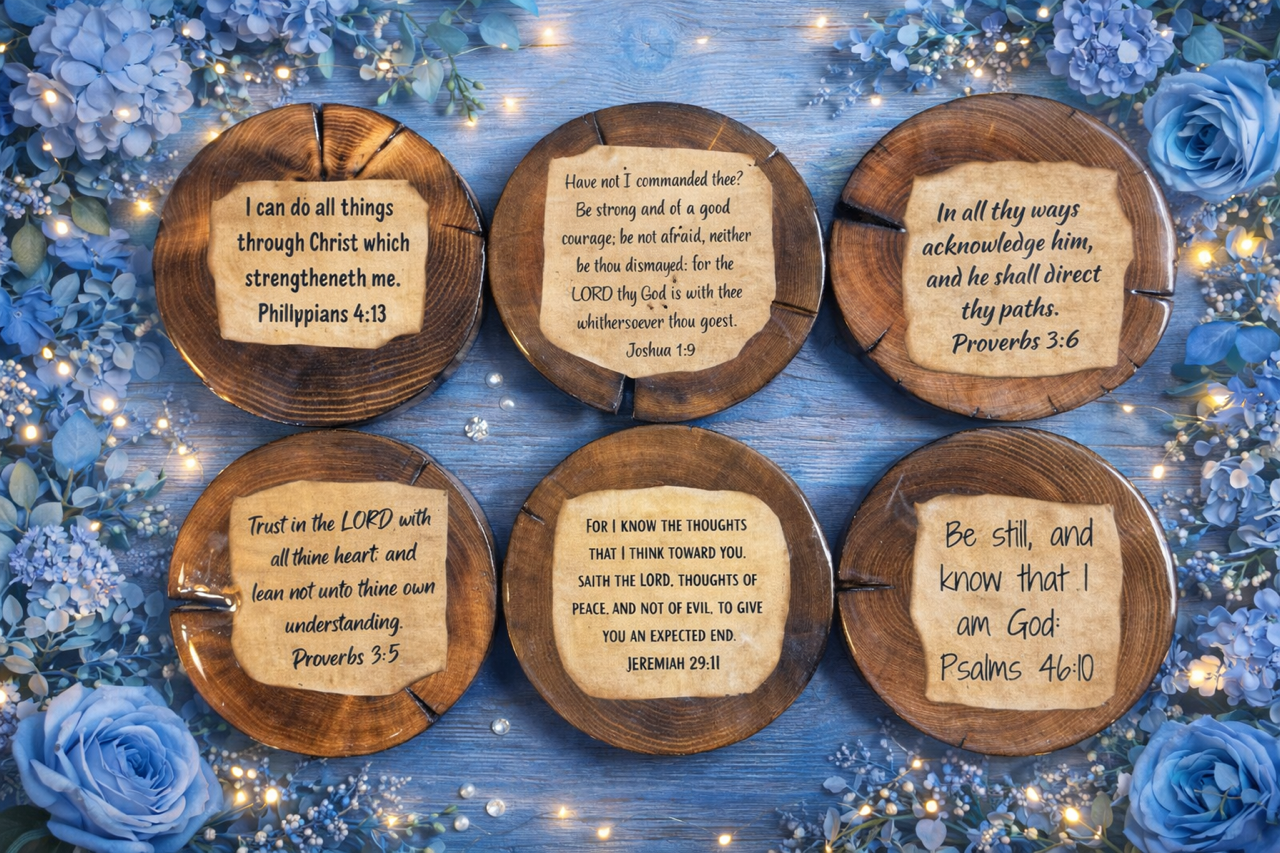 I can do all things
through Christ which
strengtheneth me.
Phillypians 4:13
Have not I commanded thee?
Be strong and of a good
courage; be not afraid, neither
be thou dismayed: for the
LORD thy God is with thee
whithersoever thou goest.
Joshua 1:9
In all thy ways
acknowledge him,
and he shall direct
thy paths.
Proverbs 3:6
Trust in the LORD with
all thine heart: and
lean not unto thine own
understanding.
Proverbs 3:5
FOR I KNOW THE THOUGHTS
THAT I THINK TOWARD YOU.
SAITH THE LORD, THOUGHTS OF
PEACE, AND NOT OF EVIL, TO GIVE
YOU AN EXPECTED END.
JEREMIAH 29:11
Be still, and
know that I
am God:
Psalms 46:10